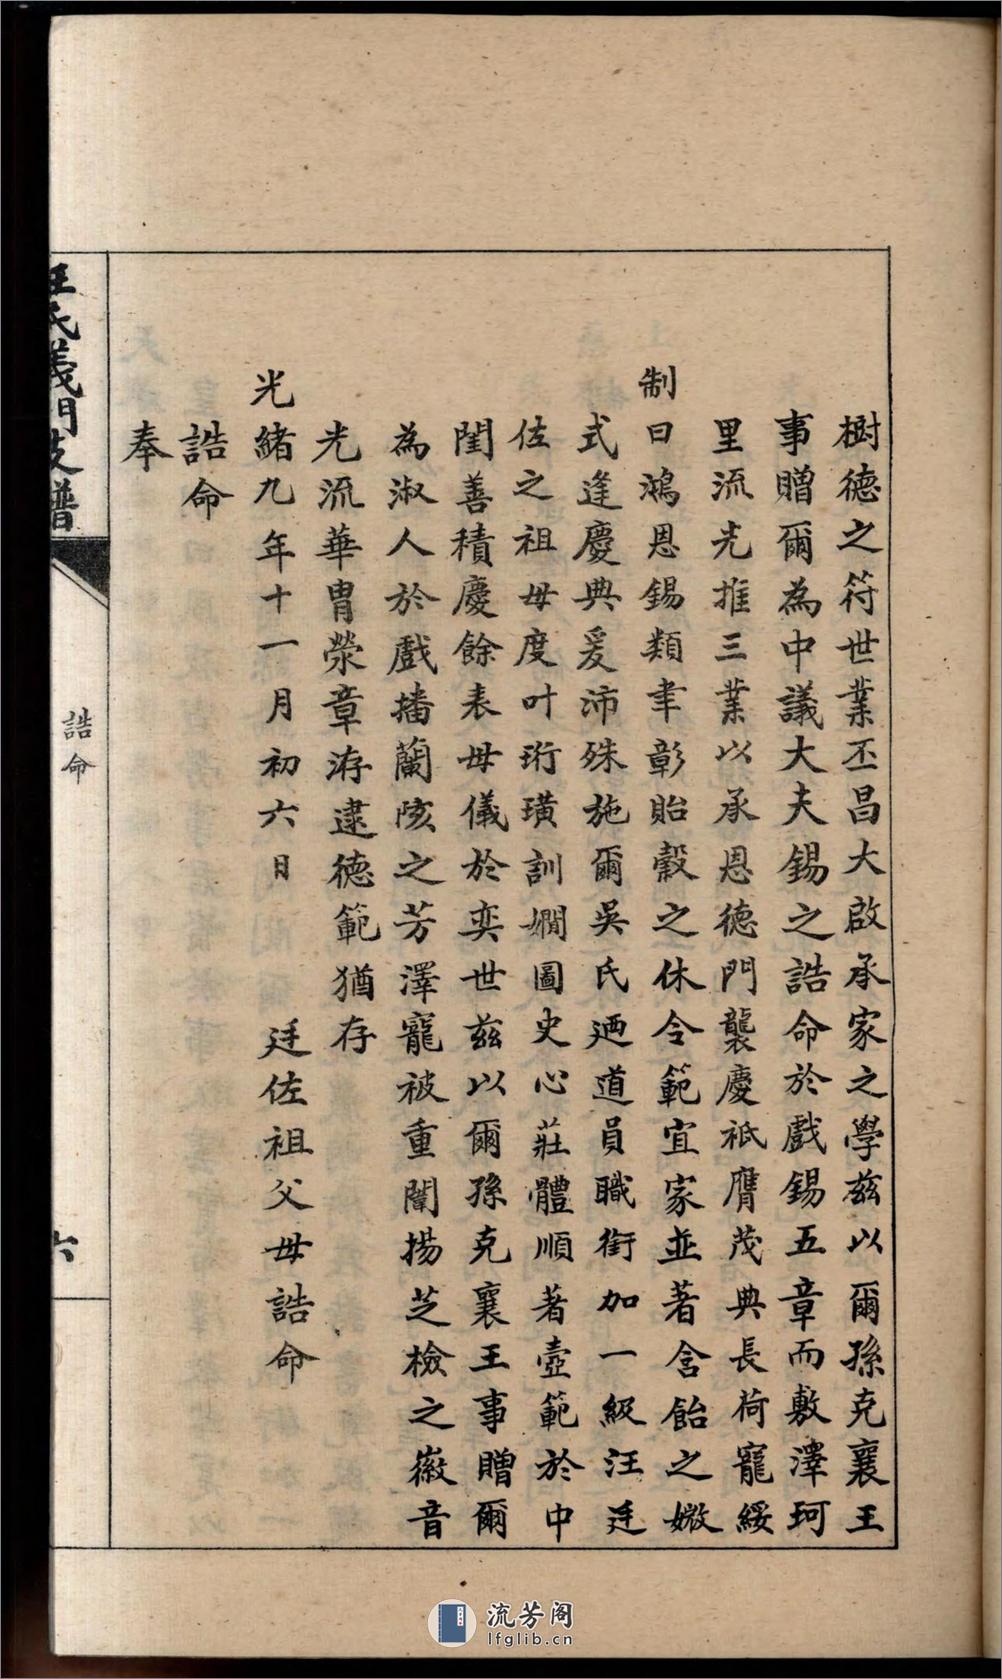 樹德之符世業丕昌大啟承家之學茲以爾孫克襄王
事贈爾為中議大夫錫之誥命於戲錫五章而敷澤珂
里流光推三業以承恩德門襲慶祇膺茂典長荷寵綏
制曰鴻恩錫類聿彰貽穀之休令範宜家並著含飴之媺
式逢慶典爰沛殊施爾吳氏迺道員職銜加一級汪廷
佐之祖母度叶珩璜訓嫺圖史心莊體順著壼範於中
閨善積慶餘表母儀於奕世茲以爾孫克襄王事贈爾
為淑人於戲播蘭陔之芳澤寵被重闈揚芝檢之徽音
光流華胄滎章洊逮德範猶存
光緒九年十一月初六日 廷佐祖父母誥命
誥命
奉
汪氏義門支譜
誥命
六
流芳阁
lfglib.cn